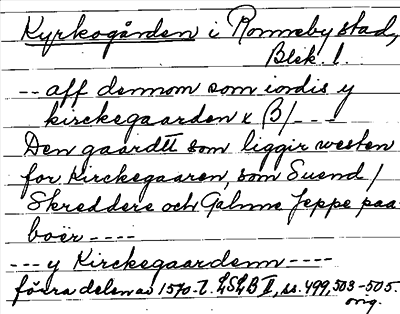 Kyrkogården i Ronneby stad,
Blek. l.
-- aff dennom som iordis y
kirckegaarden x B/ ---
Den gaardtt som liggir westen
for kirckegaaren, som Suend /
Skreddere och Galmne Jeppe paa
boer ----
--- y Kirckegaardenn ----
förra delen av 1570-t. LSLB II, ss. 499, 503-505.
orig.